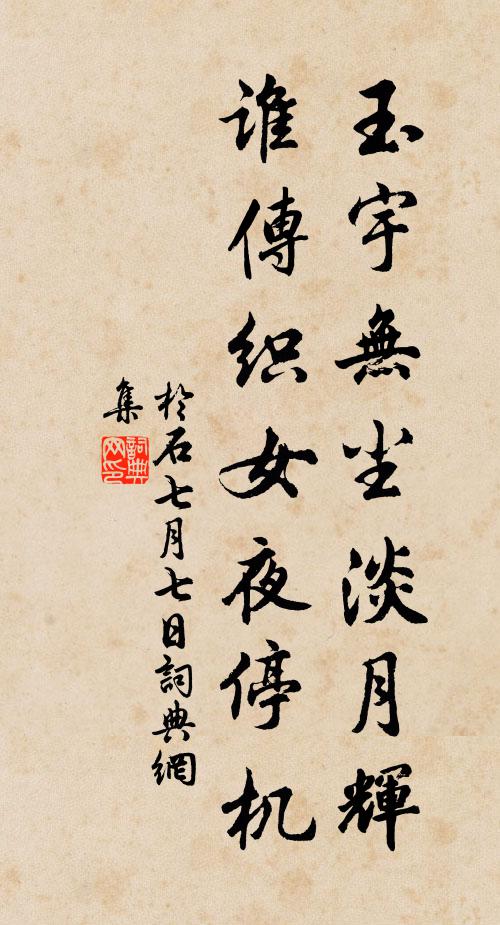 玉宇無尘淡月輝
誰傳织女夜停机
於石七月七日詞典網
集
詞典网印